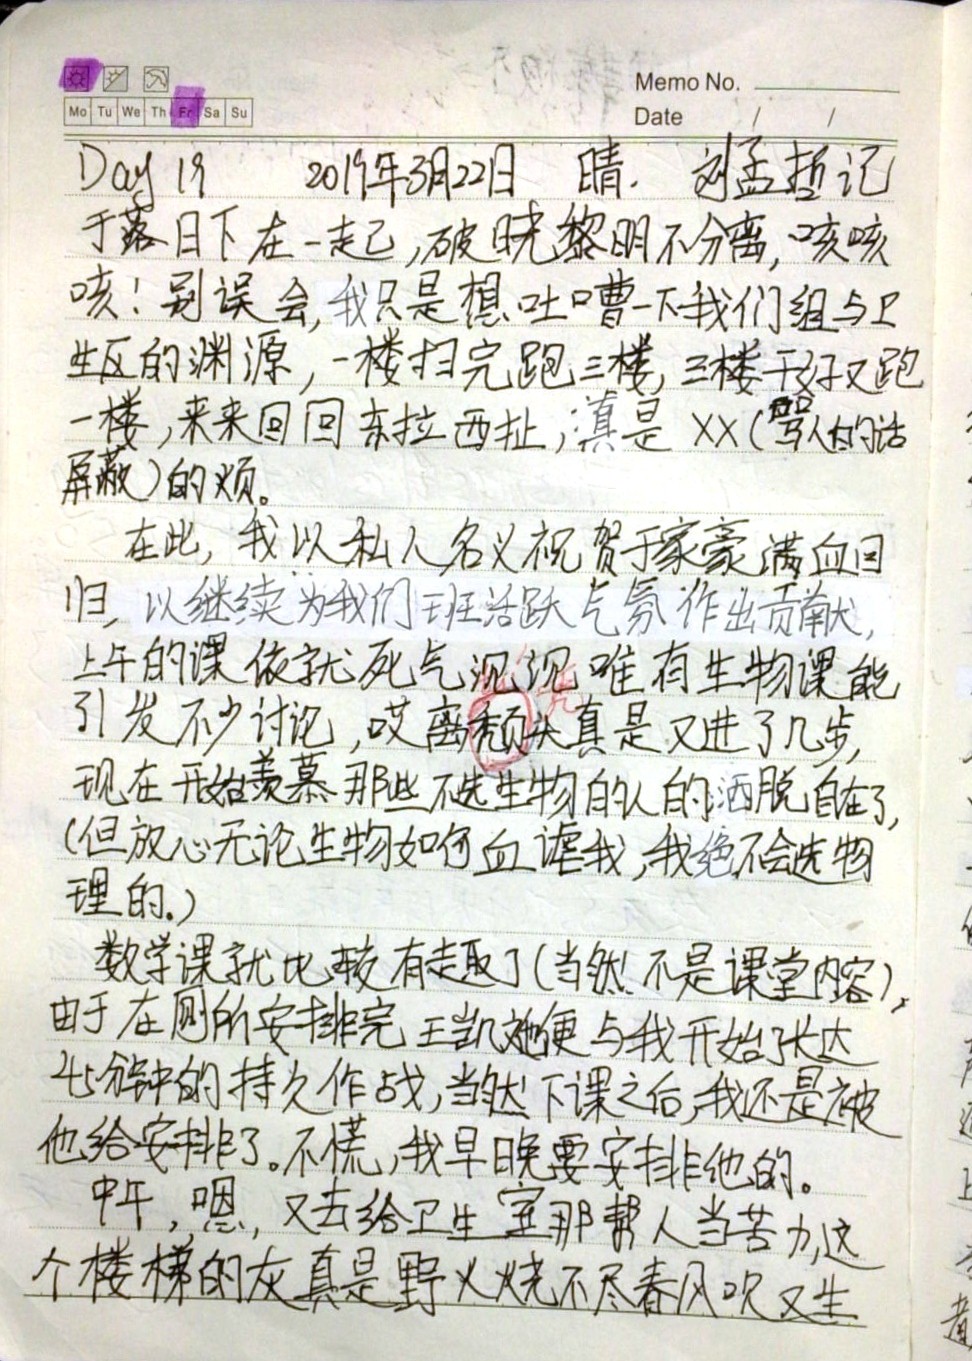 Memo No.
Mo Tu We Th Fr Sa Su
Date / /
Day 19 2019年3月22日 晴. 刘孟哲记
于落日下在一起,破晓黎明不分离,咳咳
咳!别误会,我只是想吐嘈一下我们组与卫
生区的渊源,一楼扫完跑三楼,三楼干好又跑
一楼,来来回回东拉西扯,滇是XX(骂人的话
屏蔽)的烦。
在此,我以私人名义祝贺于家豪满血回
归,以继续为我们班活跃气氛作出贡献,
上午的课依就死气沉沉唯有生物课能
引发不少讨论,哎离颓头真是又进了几步,
秃
现在开始羡慕那些不选生物的人的洒脱自在了,
(但放心无论生物如何血虐我,我绝不会选物
理的.)
数学课就比较有趣了(当然不是课堂内容),
由于在厕所安排完王凯她便与我开始了长达
45分钟的持久作战,当然下课之后,我还是被
他给安排了。不慌,我早晚要安排他的。
中午,嗯,又去给卫生室那帮人当苦力,这
个楼梯的灰真是野火烧不尽春风吹又生